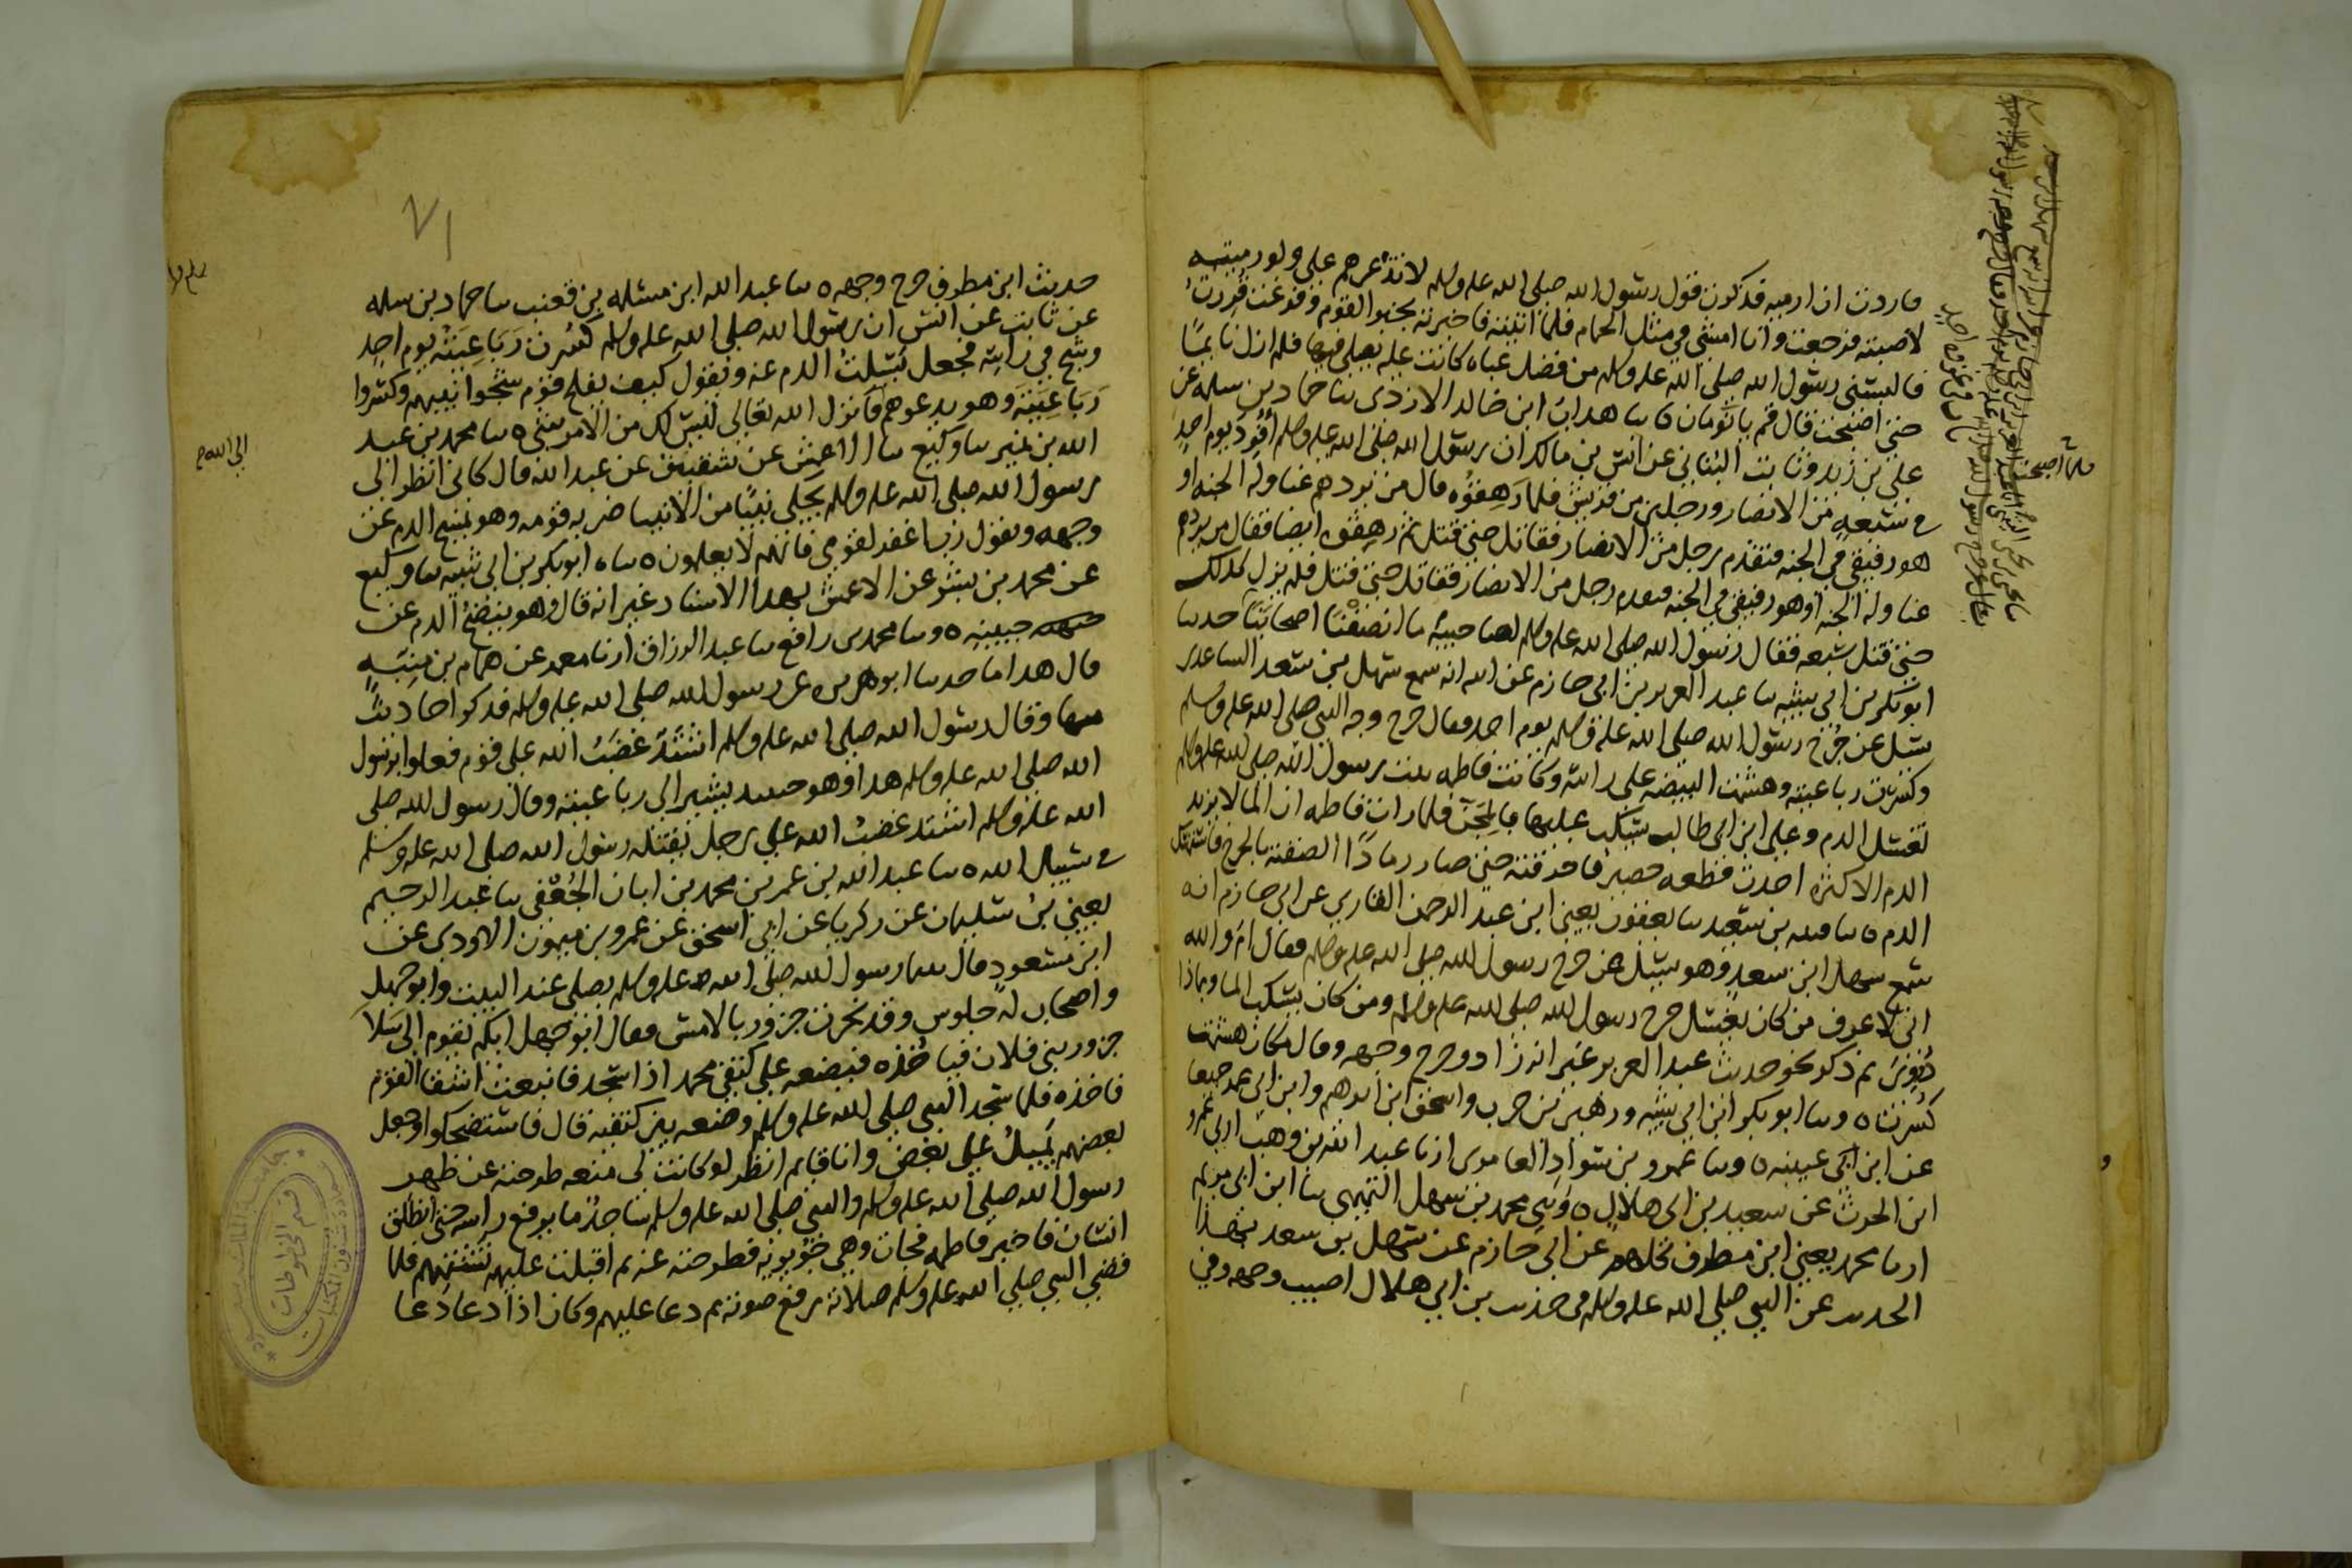 فاردت ان ارميه فذكرت قول رسول الله صلى الله عليه وسلم لا تذعرهم علي ولو رميته
لاصبته فرجعت وانا امشي في مثل الحمام فلما اتيته فاخبرته بخبر القوم وفرغت قررت
فالبسني رسول الله صلى الله عليه وسلم من فضل عباه كانت عليه يصلي فيها فلم ازل نايما
حتى اصبحت فقال قم يا نومان ٥ سا هداب ابن خالد الازدي سا حماد بن سلمه عن
علي بن زيد وثابت البناني عن انس بن مالك ان رسول الله صلى الله عليه وسلم أفرد يوم احد
في سبعه من الانصار ورجلين من قريش فلما رهقوه قال من يردهم عنا وله الجنه او
هو رفيقي في الجنه فتقدم رجل من الانصار فقاتل حتى قتل ثم رهقوه ايضا فقال من يردهم
عنا وله الجنه او هو رفيقي في الجنه فتقدم رجل من الانصار فقاتل حتى قتل فلم يزل كذلك
حتى قتل سبعه فقال رسول الله صلى الله عليه وسلم لصاحبيه ما انصفنا اصحابنا حدثنا
ابو بكر بن ابي شيبه سا عبد العزيز بن ابي حازم عن ابيه انه سمع سهل بن سعد الساعدي
يسل عن جرح رسول الله صلى الله عليه وسلم يوم احد فقال جرح وجه النبي صلى الله عليه وسلم
وكسرت رباعيته وهشمت البيضه على راسه وكانت فاطمه بنت رسول الله صلى الله عليه وسلم
تغسل الدم وعلي ابن ابي طالب يسكب عليها بالمجن فلما رات فاطمه ان الما لا يزيد
الدم الا كثره اخذت قطعه حصير فاحرقته حتى صار رمادا الصقته بالجرح فاستمسك
الدم ٥ سا قتيبه بن سعيد سا يعقوب يعني ابن عبد الرحمن القاري عن ابي حازم انه
سمع سهل ابن سعد وهو يسل عن جرح رسول الله صلى الله عليه وسلم فقال ام والله
اني لاعرف من كان يغسل جرح رسول الله صلى الله عليه وسلم ومن كان يسكب الما وبماذا
دووي ثم ذكر نحو حديث عبد العزيز غير انه زاد وجرح وجهه وقال مكان هشمت
كسرت ٥ وسا ابو بكر ابن ابي شيبه وزهير بن حرب واسحق ابن ابرهيم وابن ابي عمر جميعا
عن ابن ابي عيينه ٥ وسا عمرو بن سواد العامري انا عبد الله بن وهب اخبرني عمرو
ابن الحرث عن سعيد بن ابي هلال ٥ وثني محمد بن سهل التميمي سا ابن ابي مريم
انا محمد يعني ابن مطرف كلهم عن ابي حازم عن سهل بن سعد بهذا
الحديث عن النبي صلى الله عليه وسلم في حديث بن ابي هلال اصيب وجهه وفي
فلما اصبحت
باب في غزوة احد
٧١
حديث ابن مطرف جرح وجهه ٥ سا عبد الله ابن مسلمه بن قعنب سا حماد بن سلمه
عن ثابت عن انس ان رسول الله صلى الله عليه وسلم كسرت رباعيته يوم احد
وشج في راسه فجعل يسلت الدم عنه ويقول كيف يفلح قوم شجوا نبيهم وكسروا
رباعيته وهو يدعوهم فانزل الله تعالى ليس لك من الامر شي ٥ سا محمد بن عبد
الله بن نمير سا وكيع سا الاعمش عن شقيق عن عبد الله قال كاني انظر الى
رسول الله صلى الله عليه وسلم يحكي نبيا من الانبيا ضربه قومه وهو يمسح الدم عن
وجهه ويقول رب اغفر لقومي فانهم لا يعلمون ٥ سا ابو بكر بن ابي شيبه سا وكيع
عن محمد بن بشر عن الاعمش بهذا الاسناد غير انه قال وهو ينضح الدم عن
جبينه ٥ وسا محمد بن رافع سا عبد الرزاق انا معمر عن همام بن منبه
قال هذا ما حدثنا ابو هريره عن رسول الله صلى الله عليه وسلم فذكر احاديث
منها وقال رسول الله صلى الله عليه وسلم اشتد غضب الله على قوم فعلوا برسول
الله صلى الله عليه وسلم هذا وهو حينئذ يشير الى رباعيته وقال رسول الله صلى
الله عليه وسلم اشتد غضب الله على رجل يقتله رسول الله صلى الله عليه وسلم
في سبيل الله ٥ سا عبد الله بن عمر بن محمد بن ابان الجعفي سا عبد الرحيم
يعني بن سليمان عن زكريا عن ابي اسحق عن عمرو بن ميمون الاودي عن
ابن مسعود قال بينما رسول الله صلى الله عليه وسلم يصلي عند البيت وابو جهل
واصحاب له جلوس وقد نحرت جزور بالامس فقال ابو جهل ايكم يقوم الى سلا
جزور بني فلان فياخذه فيضعه على كتفي محمد اذا سجد فانبعث اشقا القوم
فاخذه فلما سجد النبي صلى الله عليه وسلم وضعه بين كتفيه قال فاستضحكوا وجعل
بعضهم يميل على بعض وانا قايم انظر لو كانت لي منعه طرحته عن ظهر
رسول الله صلى الله عليه وسلم والنبي صلى الله عليه وسلم ساجد ما يرفع راسه حتى انطلق
انسان فاخبر فاطمه فجات وهي جويريه فطرحته عنه ثم اقبلت عليهم تشتمهم فلما
قضى النبي صلى الله عليه وسلم صلاته رفع صوته ثم دعا عليهم وكان اذا دعا دعا
قسم المخطوطات